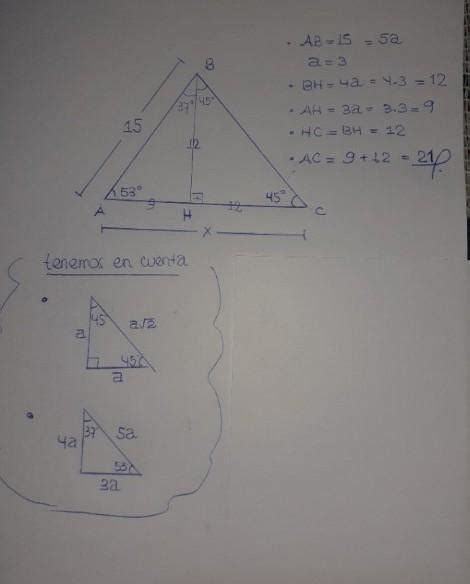 B
37° 45°
15
12
53° 45°
A 9 H 12 C
x
• AB = 15 = 5a
a = 3
• BH = 4a = 4·3 = 12
• AH = 3a = 3·3 = 9
• HC = BH = 12
• AC = 9 + 12 = 21
tenemos en cuenta
•
45
a a√2
45
a
•
37
4a 5a
53
3a